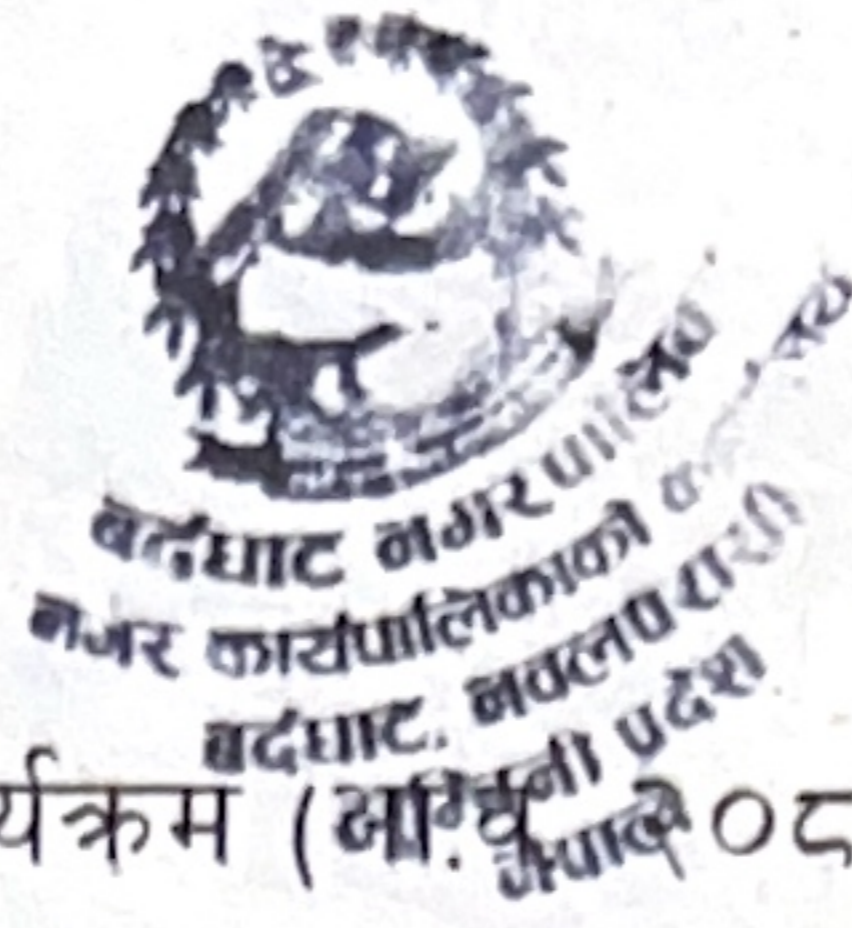 बर्दघाट नगरपालिका
नगर कार्यपालिकाको
बर्दघाट, नवलपरासी
लुम्बिनी प्रदेश
नेपाल
र्यक्रम (आ.व. २०८